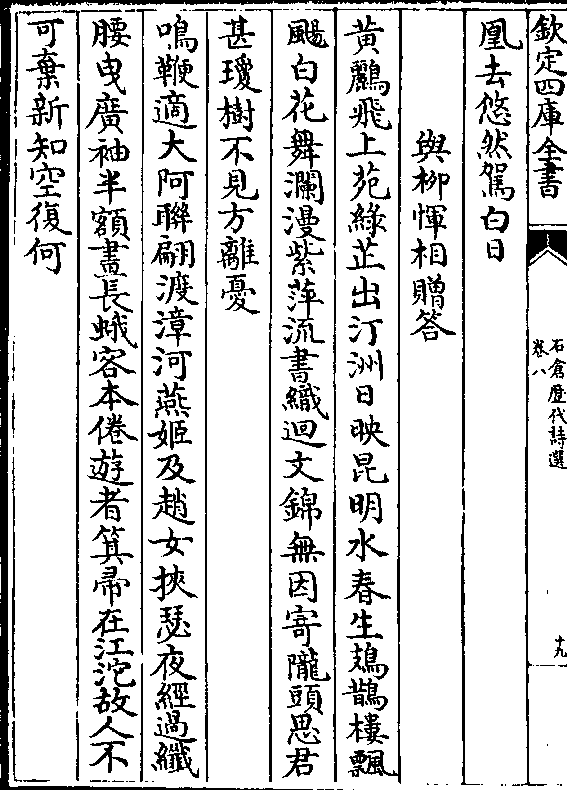 欽定四庫全書
石倉歷代詩選
卷八
十九
凰去悠然駕白日
與柳惲相贈答
黄鸝飛上苑綠芷出汀洲日映昆明水春生鳷鵲樓飄
颺白花舞瀾漫紫萍流書織迴文錦無因寄隴頭思君
甚瓊樹不見方離憂
鳴鞭適大阿聨翩渡漳河燕姬及趙女挾瑟夜經過纖
腰曵廣袖半額畫長蛾客本倦遊者箕帚在江沱故人不
可棄新知空復何